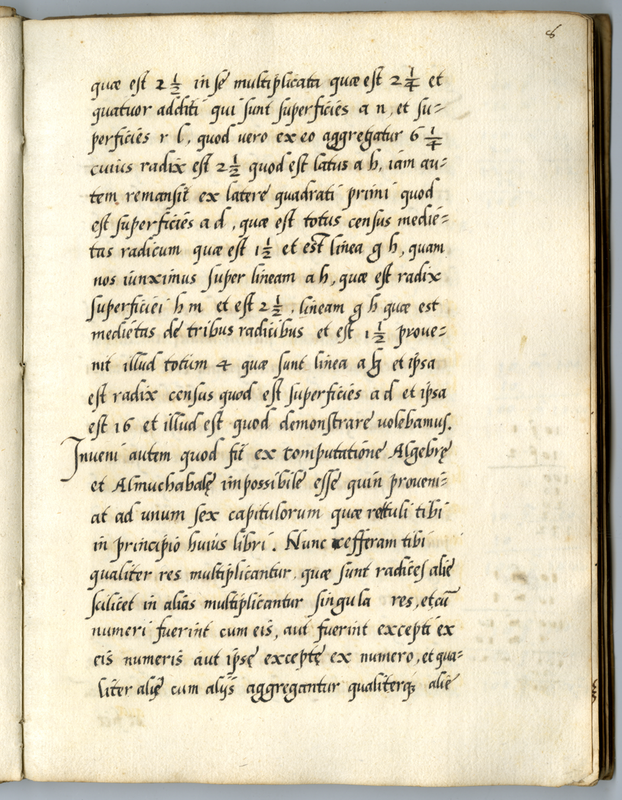 8
quæ est 2 1/2 in se multiplicata quæ est 2 1/4 et
quatuor additi qui sunt superficies a n, et su=
perficies r l, quod vero ex eo aggregatur 6 1/4
cuius radix est 2 1/2 quod est latus a h, iam au=
tem remansit ex latere quadrati primi quod
est superficies a d, quæ est totus census medie=
tas radicum quæ est 1 1/2 et est linea g h, quam
nos iunximus super lineam a h, quæ est radix
superficiei h m et est 2 1/2, lineam g h quæ est
medietas de tribus radicibus et est 1 1/2 prove=
nit illud totum 4 quæ sunt linea a g et ipsa
est radix census quod est superficies a d et ipsa
est 16 et illud est quod demonstrare volebamus.
Inveni autem quod fit ex computatione Algebrę
et Almuchabalę impossibile esse quin proveni=
at ad unum sex capitulorum quæ retuli tibi
in principio huius libri. Nunc refferam tibi
qualiter res multiplicantur, quæ sunt radices alię
scilicet in alias multiplicantur singula res, et cū
numeri fuerint cum eis, aut fuerint excepti ex
eis numeris aut ipsę exceptę ex numero, et qua=
liter alię cum alijs aggregantur qualiterq; alię